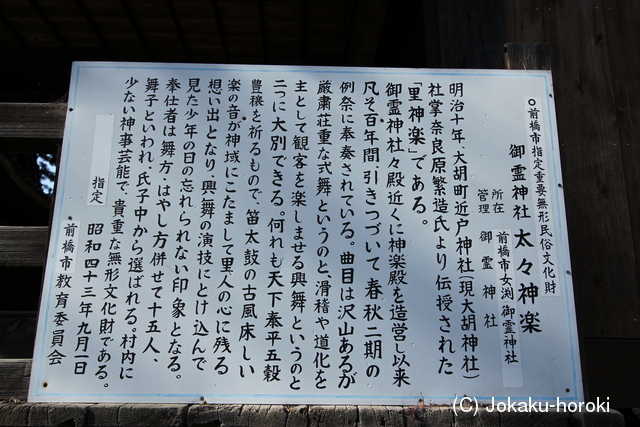 ○前橋市指定重要無形民俗文化財
御霊神社 太々神楽
所在 前橋市女渕 御霊神社
管理 御霊神社
明治十年、大胡町近戸神社(現大胡神社)
社掌奈良原繁造氏より伝授された
「里神楽」である。
御霊神社々殿近くに神楽殿を造営し以来
凡そ百年間、引きつづいて春秋二期の
例祭に奉奏されている。曲目は沢山あるが
厳粛荘重な式舞というのと、滑稽や道化を
主として観客を楽しませる興舞というのと
二つに大別できる。何れも天下泰平五穀
豊穣を祈るもので、笛太鼓の古風床しい
楽の音が神域にこだまして里人の心に残る
想い出となり、興舞の演技にとけ込んで
見た少年の日の忘れられない印象となる。
奉仕者は舞方、はやし方併せて十五人、
舞子といわれ、氏子中から選ばれる。村内に
少ない神事芸能で、貴重な無形文化財である。
指定 昭和四十三年九月一日
前橋市教育委員会
(C) Jokaku-horoki